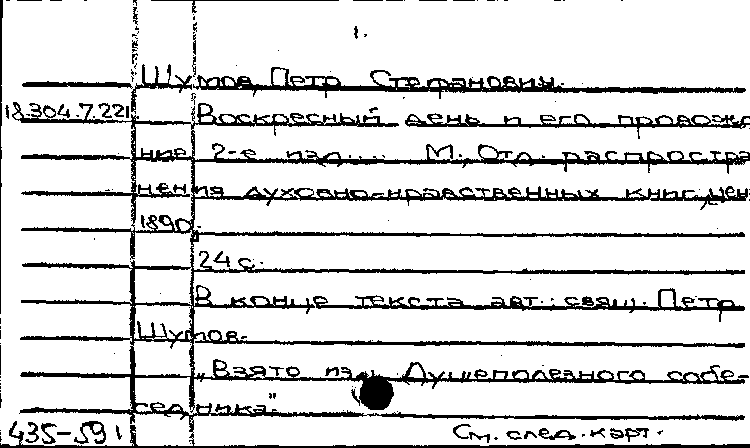 1.
Шумов, Петр Стефанович.
18.304.7.221 Воскресный день и его провожде-
ние 2-е изд.... М., Отд. распростра-
нения духовно-нравственных книг,
1890.
24 с.
В конце текста авт.: свящ. Петр
Шумов.
"Взято из "Душеполезного собе-
седника"
435-591 См. след. карт.